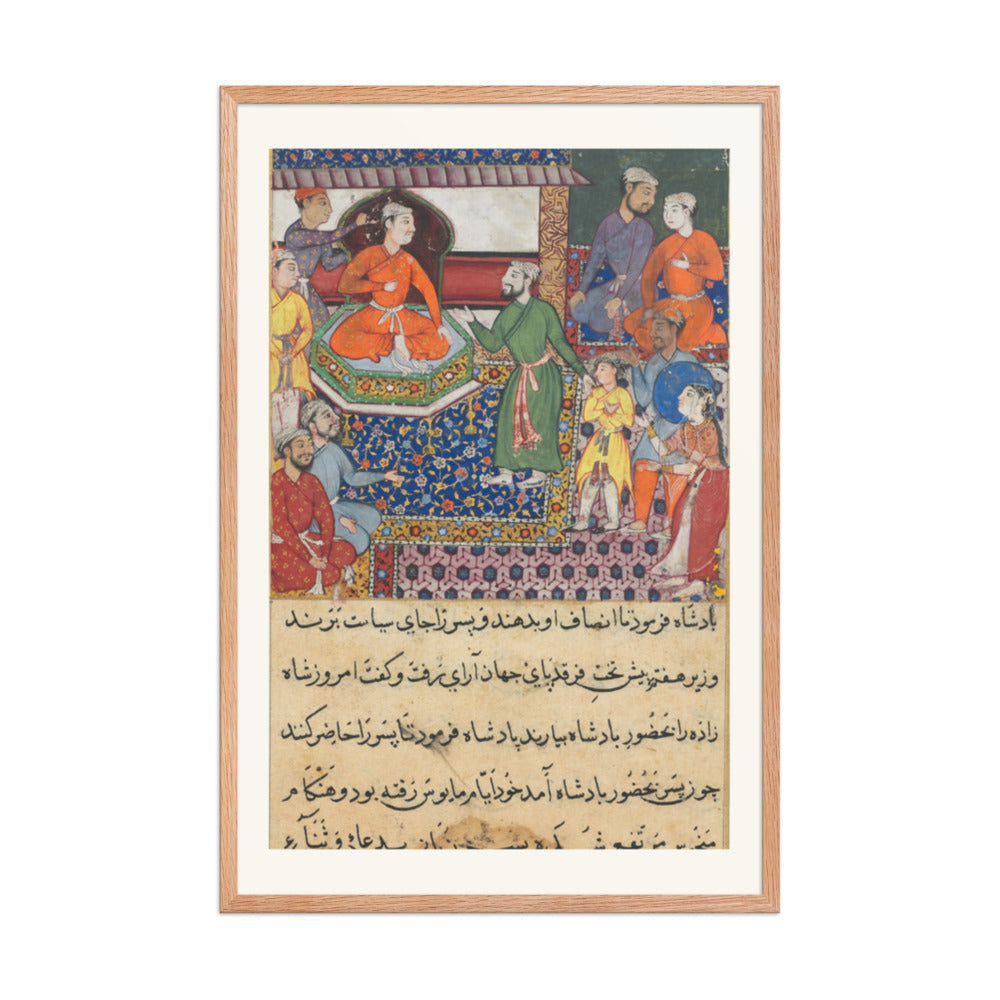 بادشاه فرمود تا انصاف او بدهند و پسر را جای سیاست برند
وزیر هفتم پیش تخت فرقد پای جهان آرای رفت و گفت امروز شاه
زاده را بحضور بادشاه بیارند بادشاه فرمود تا پسر را حاضر کنند
چون پسر بحضور بادشاه آمد خود ایام مایوس رفته بود و هنکام